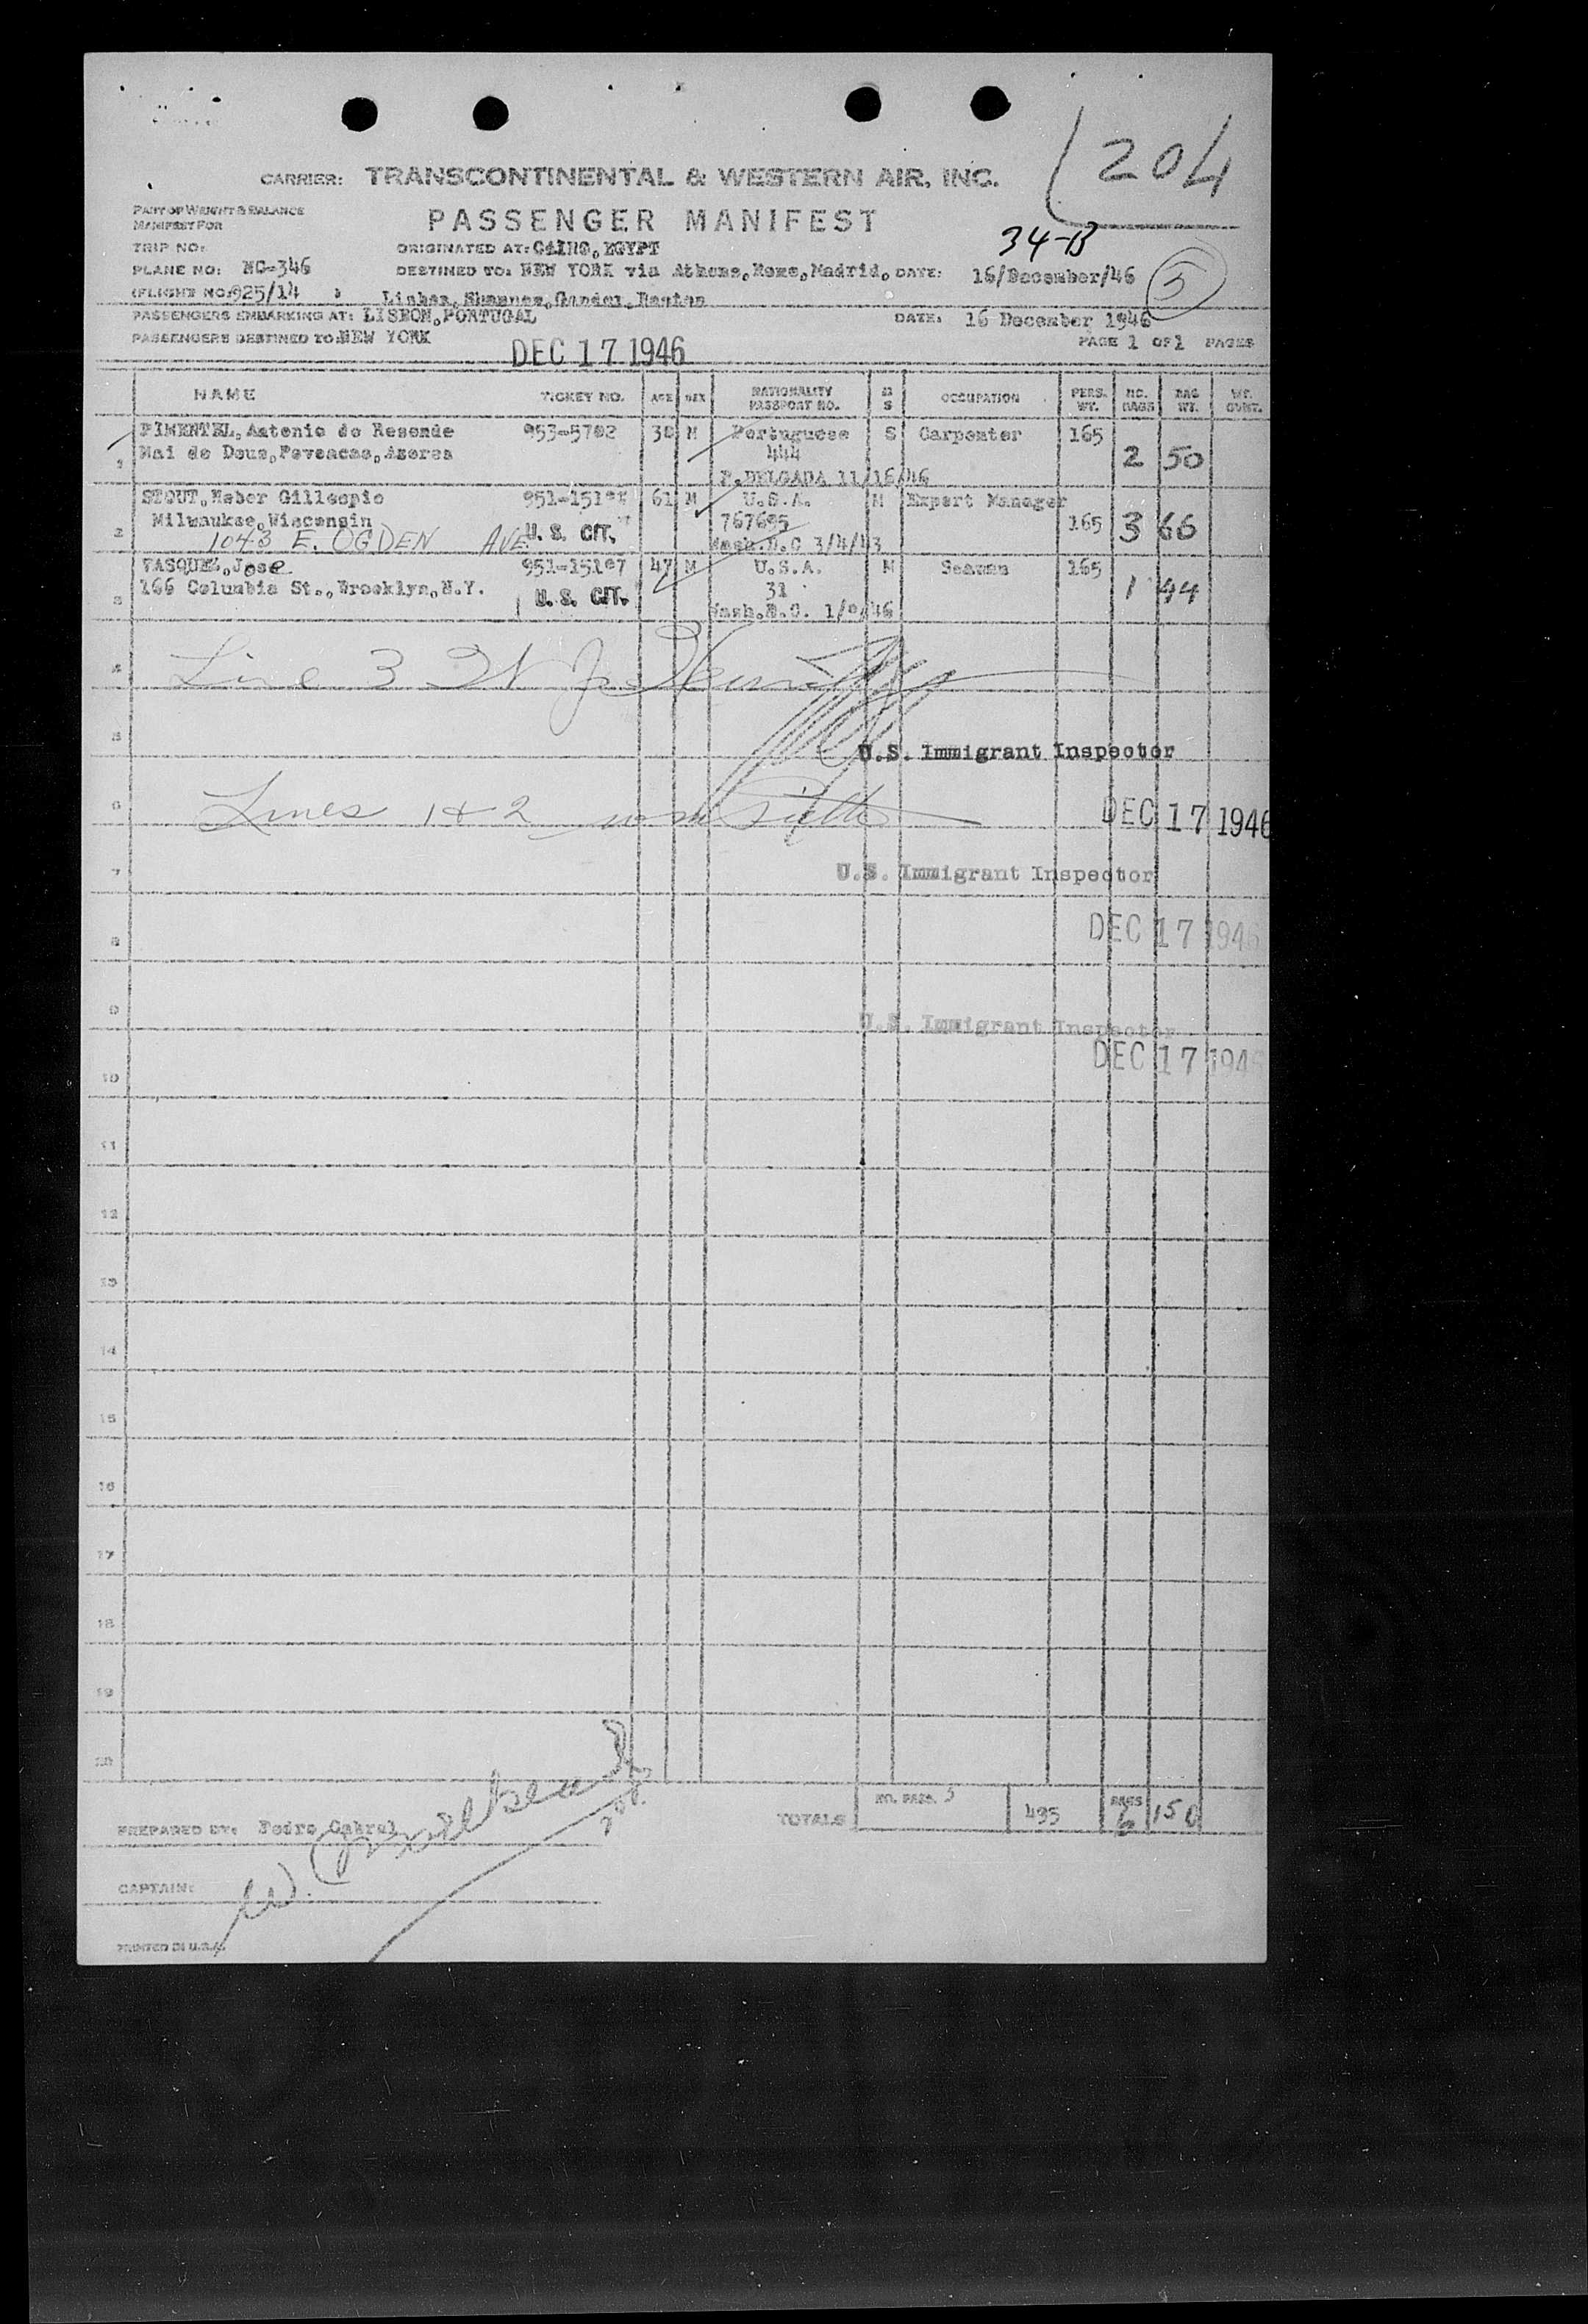 204
CARRIER: TRANSCONTINENTAL & WESTERN AIR, INC.
PART OF WEIGHT & BALANCE
MANIFEST FOR
PASSENGER MANIFEST
34-B
TRIP NO:
ORIGINATED AT: CAIRO, EGYPT
PLANE NO: NC-346
DESTINED TO: NEW YORK via Athens, Rome, Madrid, DATE: 16/December/46
5
(FLIGHT NO: 925/14 )
Lisbon, Shannon, Gander, Boston
PASSENGERS EMBARKING AT: LISBON, PORTUGAL DATE: 16 December 1946
PASSENGERS DESTINED TO: NEW YORK
DEC 17 1946
PAGE 1 OF 1 PAGES
NAME TICKET NO. AGE SEX NATIONALITY PASSPORT NO. M S OCCUPATION PERS. WT. NO. BAGS BAG WT. WT. GVMT.
1 PIMENTEL, Antonio de Resende 953-5702 M Portuguese S Carpenter 165 2 50
Mai de Deus, Povoacao, Azores 444
P. DELGADA 11/16/46
2 STOUT, Heber Gillespie 61 M U.S.A. M Export Manager 165 3 66
Milwaukee, Wisconsin U. S. CIT. 767695
1043 E. OGDEN AVE Wash. D.C 3/4/43
3 VASQUEZ, Jose 47 M U.S.A. M Seaman 165 1 44
166 Columbia St., Brooklyn, N.Y. U. S. CIT. 31
Wash. D.C.
4 Line 3
5
U.S. Immigrant Inspector
6 Lines 1 & 2
DEC 17 1946
7
U.S. Immigrant Inspector
8
DEC 17 1946
9
U.S. Immigrant Inspector
10
DEC 17 1946
11
12
13
14
15
16
17
18
19
20
TOTALS NO. PASS. 3 495 BAGS 6 150
PREPARED BY: Pedro Cabral
CAPTAIN:
PRINTED IN U.S.A.